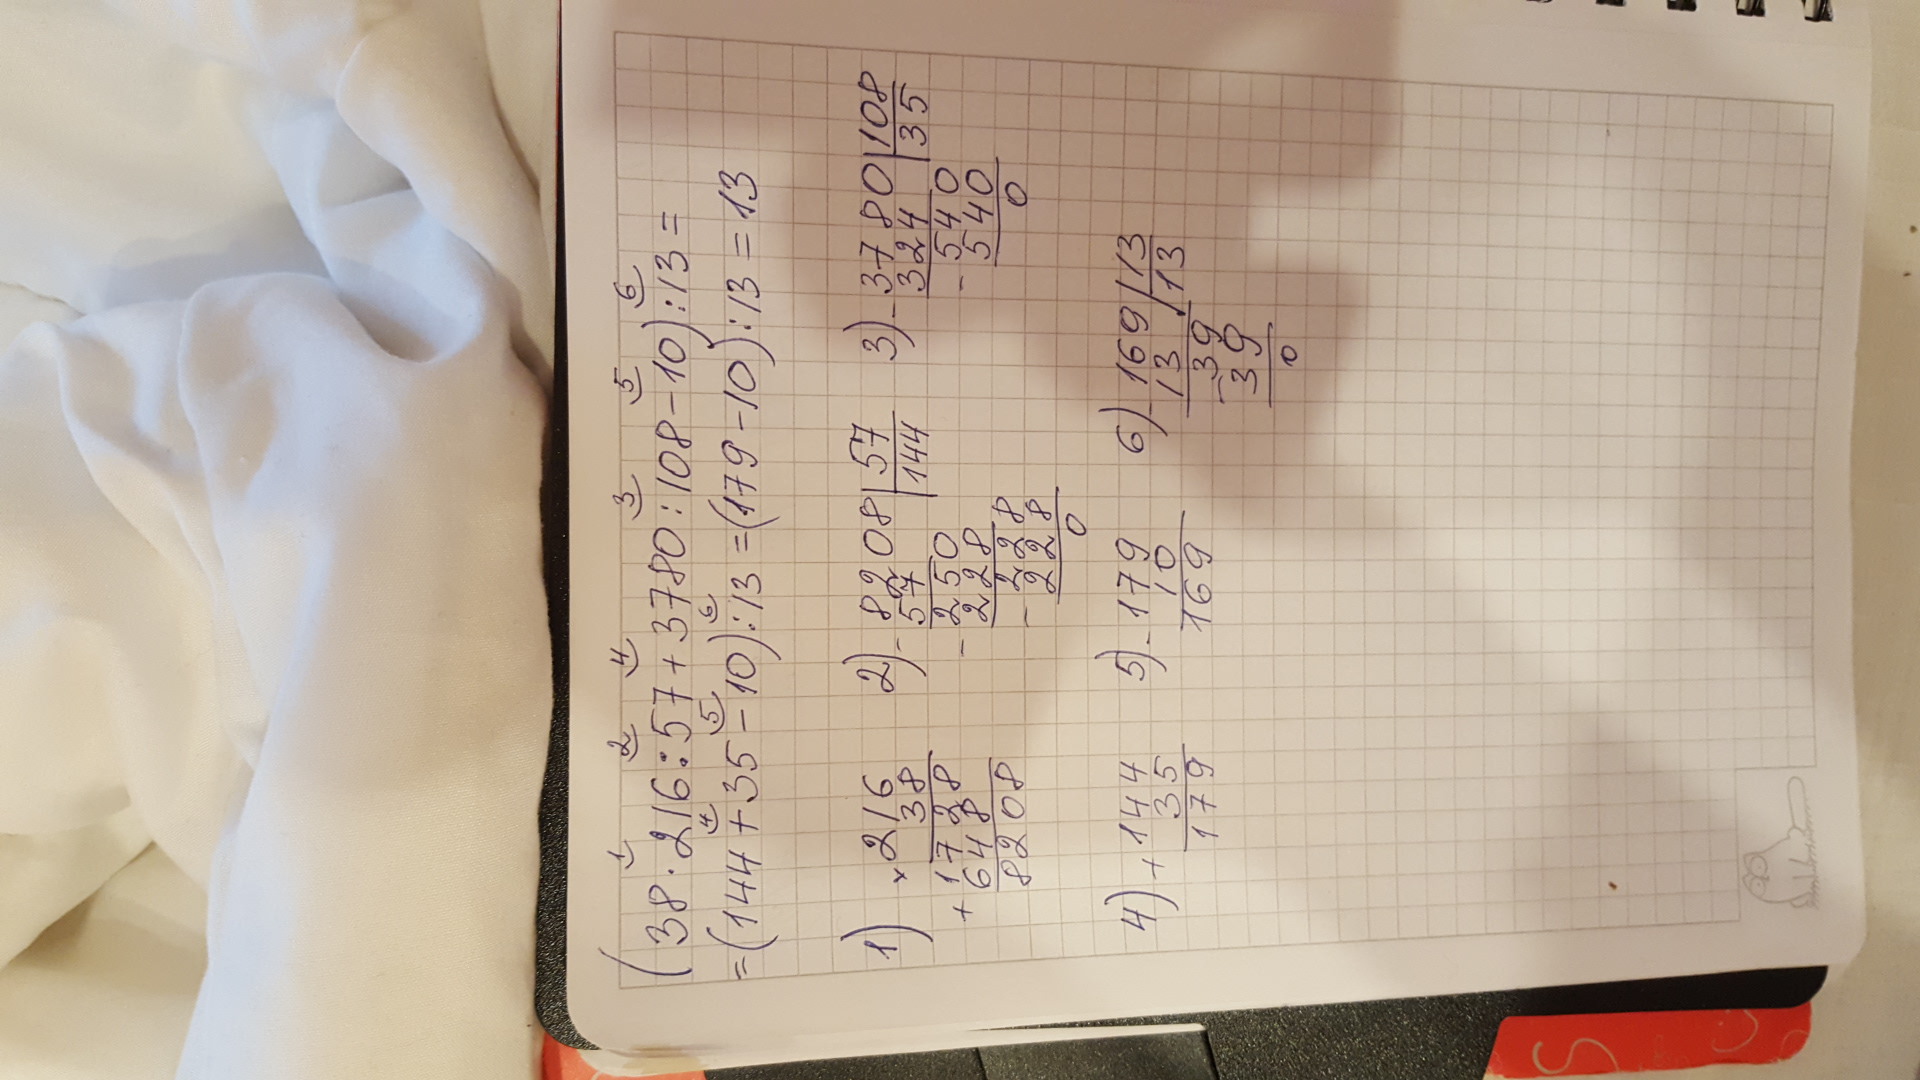 1 2 4 3 5 6
(38·216:57+3780:108-10):13=
4 5 6
=(144+35-10):13=(179-10):13=13
1) × 216
38
+ 1728
648
8208
2) - 8208 | 57
57 | 144
- 250
228
- 228
228
0
3) - 3780 | 108
324 | 35
- 540
540
0
4) + 144
35
179
5) - 179
10
169
6) - 169 | 13
13 | 13
- 39
39
0